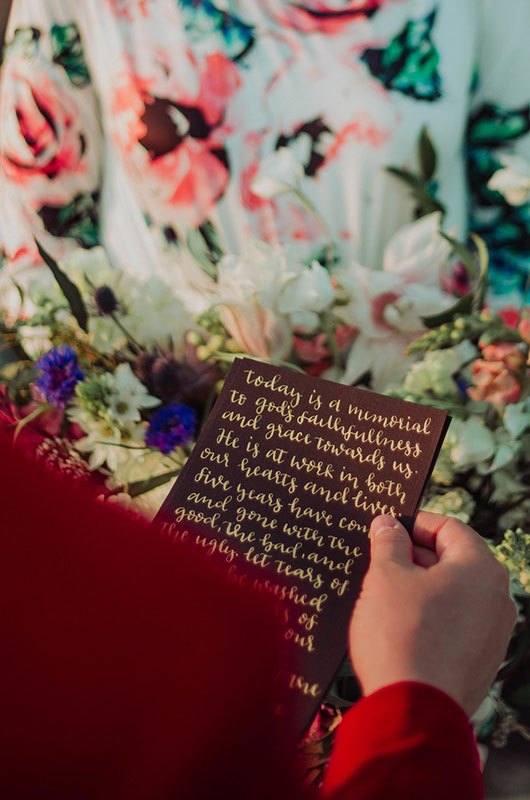 Today is a memorial
to gods faithfullness
and grace towards us.
He is at work in both
our hearts and lives.
five years have come
and gone with the
good, the bad, and
the ugly. let tears of
be washed
of
our
the